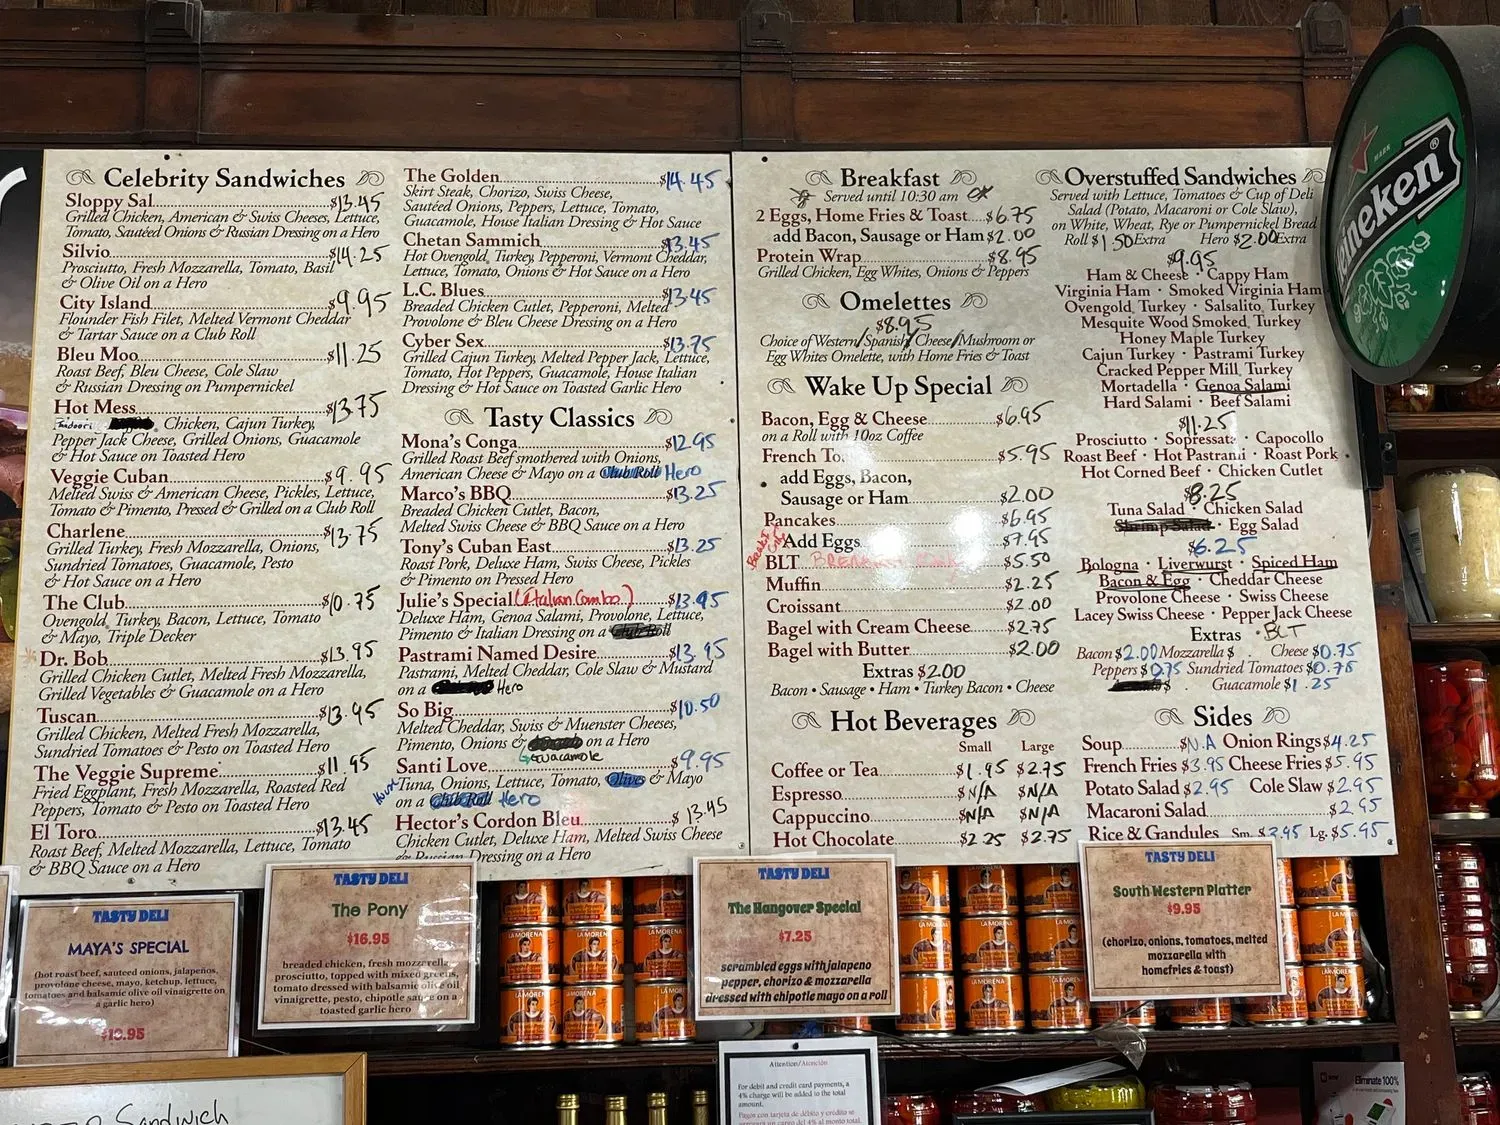 Celebrity Sandwiches
Sloppy Sal $13.45
Grilled Chicken, American & Swiss Cheeses, Lettuce,
Tomato, Sautéed Onions & Russian Dressing on a Hero
Silvio $14.25
Prosciutto, Fresh Mozzarella, Tomato, Basil
& Olive Oil on a Hero
City Island $9.95
Flounder Fish Filet, Melted Vermont Cheddar
& Tartar Sauce on a Club Roll
Bleu Moo $11.25
Roast Beef, Bleu Cheese, Cole Slaw
& Russian Dressing on Pumpernickel
Hot Mess $13.75
Tandoori Chicken, Cajun Turkey,
Pepper Jack Cheese, Grilled Onions, Guacamole
& Hot Sauce on Toasted Hero
Veggie Cuban $9.95
Melted Swiss & American Cheese, Pickles, Lettuce,
Tomato & Pimento, Pressed & Grilled on a Club Roll
Charlene $13.75
Grilled Turkey, Fresh Mozzarella, Onions,
Sundried Tomatoes, Guacamole, Pesto
& Hot Sauce on a Hero
The Club $10.75
Ovengold Turkey, Bacon, Lettuce, Tomato
& Mayo, Triple Decker
Dr. Bob $13.95
Grilled Chicken Cutlet, Melted Fresh Mozzarella,
Grilled Vegetables & Guacamole on a Hero
Tuscan $13.95
Grilled Chicken, Melted Fresh Mozzarella,
Sundried Tomatoes & Pesto on Toasted Hero
The Veggie Supreme $11.95
Fried Eggplant, Fresh Mozzarella, Roasted Red
Peppers, Tomato & Pesto on Toasted Hero
El Toro $13.45
Roast Beef, Melted Mozzarella, Lettuce, Tomato
& BBQ Sauce on a Hero
The Golden $14.45
Skirt Steak, Chorizo, Swiss Cheese,
Sautéed Onions, Peppers, Lettuce, Tomato,
Guacamole, House Italian Dressing & Hot Sauce
Chetan Sammich $13.45
Hot Ovengold, Turkey, Pepperoni, Vermont Cheddar,
Lettuce, Tomato, Onions & Hot Sauce on a Hero
L.C. Blues $13.45
Breaded Chicken Cutlet, Pepperoni, Melted
Provolone & Bleu Cheese Dressing on a Hero
Cyber Sex $13.75
Grilled Cajun Turkey, Melted Pepper Jack, Lettuce,
Tomato, Hot Peppers, Guacamole, House Italian
Dressing & Hot Sauce on Toasted Garlic Hero
Tasty Classics
Mona's Conga $12.95
Grilled Roast Beef smothered with Onions,
American Cheese & Mayo on a Club Roll Hero
Marco's BBQ $13.25
Breaded Chicken Cutlet, Bacon,
Melted Swiss Cheese & BBQ Sauce on a Hero
Tony's Cuban East $13.25
Roast Pork, Deluxe Ham, Swiss Cheese, Pickles
& Pimento on Pressed Hero
Julie's Special (Italian Combo) $13.95
Deluxe Ham, Genoa Salami, Provolone, Lettuce,
Pimento & Italian Dressing on a Club Roll
Pastrami Named Desire $13.95
Pastrami, Melted Cheddar, Cole Slaw & Mustard
on a Hero
So Big $10.50
Melted Cheddar, Swiss & Muenster Cheeses,
Pimento, Onions & on a Hero
Guacamole
Santi Love $9.95
Tuna, Onions, Lettuce, Tomato, Olives & Mayo
on a Club Roll Hero
Hector's Cordon Bleu $13.45
Chicken Cutlet, Deluxe Ham, Melted Swiss Cheese
& Russian Dressing on a Hero
Breakfast
Served until 10:30 am
2 Eggs, Home Fries & Toast $6.75
add Bacon, Sausage or Ham $2.00
Protein Wrap $8.95
Grilled Chicken, Egg Whites, Onions & Peppers
Omelettes
$8.95
Choice of Western/Spanish/Cheese/Mushroom or
Egg Whites Omelette, with Home Fries & Toast
Wake Up Special
Bacon, Egg & Cheese $6.95
on a Roll with 10oz Coffee
French To $5.95
add Eggs, Bacon,
Sausage or Ham $2.00
Pancakes $6.95
Add Eggs $7.95
BLT $5.50
Muffin $2.25
Croissant $2.00
Bagel with Cream Cheese $2.75
Bagel with Butter $2.00
Extras $2.00
Bacon • Sausage • Ham • Turkey Bacon • Cheese
Hot Beverages
Small Large
Coffee or Tea $1.95 $2.75
Espresso $N/A $N/A
Cappuccino $N/A $N/A
Hot Chocolate $2.25 $2.75
Overstuffed Sandwiches
Served with Lettuce, Tomatoes & Cup of Deli
Salad (Potato, Macaroni or Cole Slaw),
on White, Wheat, Rye or Pumpernickel Bread
Roll $1.50 Extra Hero $2.00 Extra
$9.95
Ham & Cheese · Cappy Ham
Virginia Ham · Smoked Virginia Ham
Ovengold Turkey · Salsalito Turkey
Mesquite Wood Smoked Turkey
Honey Maple Turkey
Cajun Turkey · Pastrami Turkey
Cracked Pepper Mill Turkey
Mortadella · Genoa Salami
Hard Salami · Beef Salami
$11.25
Prosciutto · Sopressata · Capocollo
Roast Beef · Hot Pastrami · Roast Pork
Hot Corned Beef · Chicken Cutlet
$8.25
Tuna Salad · Chicken Salad
Shrimp Salad · Egg Salad
$6.25
Bologna · Liverwurst · Spiced Ham
Bacon & Egg · Cheddar Cheese
Provolone Cheese · Swiss Cheese
Lacey Swiss Cheese · Pepper Jack Cheese
Extras · BLT
Bacon $2.00 Mozzarella $ Cheese $0.75
Peppers $0.75 Sundried Tomatoes $0.75
$ Guacamole $1.25
Sides
Soup $N.A Onion Rings $4.25
French Fries $3.95 Cheese Fries $5.95
Potato Salad $2.95 Cole Slaw $2.95
Macaroni Salad $2.95
Rice & Gandules Sm. $3.95 Lg. $5.95
Heineken®
TASTY DELI
MAYA'S SPECIAL
(hot roast beef, sauteed onions, jalapeños,
provolone cheese, mayo, ketchup, lettuce,
tomatoes and balsamic olive oil vinaigrette on
a garlic hero)
TASTY DELI
The Pony
$16.95
breaded chicken, fresh mozzarella,
prosciutto, topped with mixed greens,
tomato dressed with balsamic olive oil
vinaigrette, pesto, chipotle sauce on a
toasted garlic hero
TASTY DELI
The Hangover Special
$7.25
scrambled eggs with jalapeno
pepper, chorizo & mozzarella
dressed with chipotle mayo on a roll
TASTY DELI
South Western Platter
$9.95
(chorizo, onions, tomatoes, melted
mozzarella with
homefries & toast)
LA MORENA
Attention/Atención
For debit and credit card payments, a
4% charge will be added to the total
amount.
Pagos con tarjeta de débito y crédito se
Sandwich
Eliminate 100%